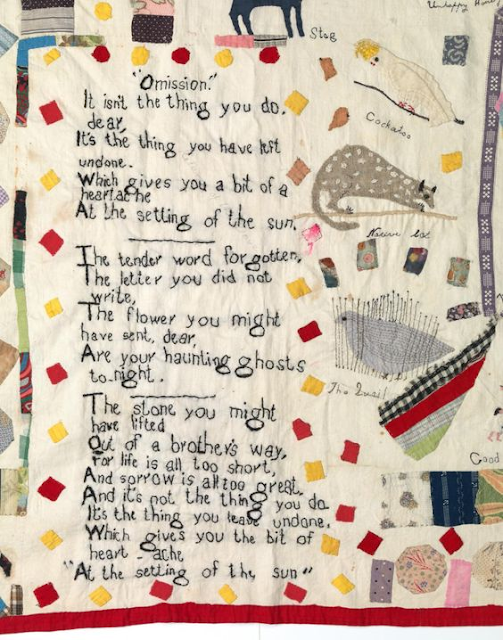 Unhappy
Stag
"Omission."
It isn't the thing you do,
dear,
It's the thing you have left
undone.
Which gives you a bit of a
heartache
At the setting of the sun.
Cockatoo
Native Cat
The tender word forgotten,
The letter you did not
write,
The flower you might
have sent, dear,
Are your haunting ghosts
to-night.
The Quail
The stone you might
have lifted
Out of a brother's way,
For life is all too short,
And sorrow is all too great,
And it's not the thing you do
It's the thing you leave undone,
Which gives you the bit of
heart-ache
"At the setting of the sun"
Good